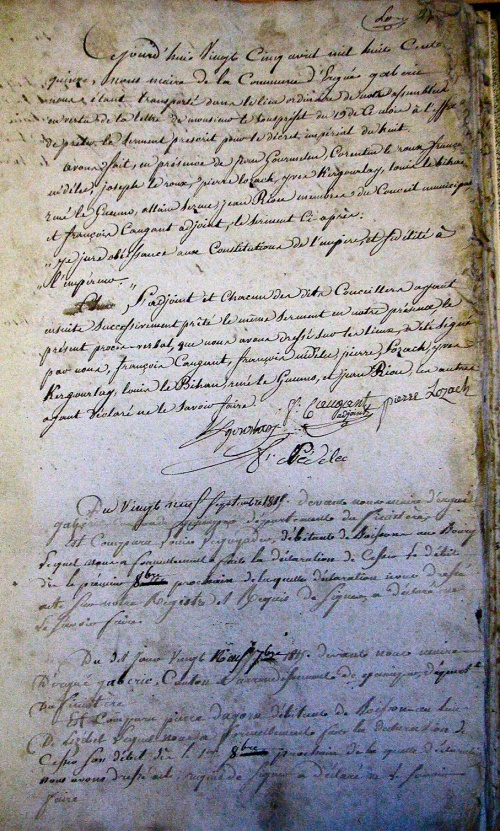 Cejourd'hui Vingt Cinq avril mil huit Cent
quinze, nous maire de la Commune d'Ergué gabéric
nous étant transporté dans le lieu ordinaire de nos assemblées
en vertu de la lettre de monsieur le Sousprefet du 19 de Ce mois à l'effet
de prêter le serment prescrit pour le décret impérial du huit.
avons fait, en présence de Jean Gourmelen, Corentin le roux, françois
nédélec, joseph le roux, pierre lozach, yves Kergourlay, louis le bihan
rené le Guenno, allain jean Riou membres du Conseil municipal
et françois Caugant adjoint, le serment Ci-après:
"je jure obéissance aux Constitutions de l'empire, et fidélité à
l'empereur."
l'adjoint et Chacun des dits Conseillers ayant
ensuite Successivement prêté le même serment en notre présence, le
présent procès-verbal, que nous avons dressé sur les lieux, a été signé
par nous, françois Caugant, françois nédélec, pierre Lozach, yves
Kergourlay, louis le Bihan, rené le Guenno, et jean Riou, les autres
ayant déclaré ne le savoir faire.
fr. Caugant
adjoint
pierre Lozach
fr. Nédélec
Du Vingt neuf Septembre 1815 devant nous maire d'ergué
gabéric département du finistère,
Est Comparu débitante de Boisson au Bourg
lequel nous a formellement fait la déclaration de Cesser le débit
dès le premier 8bre prochain de laquelle déclaration nous dressé
acte Sur notre Registre et Requis de Signer, a déclaré ne
le Savoir faire.
Du dit jour Vingt Neuf 7bre 1815. devant nous maire
d'ergué gabéric, Canton et arrondissement de quimper, départmt
Du finistère
Est Comparu pierre débitante de Boisson au lieu
De lequel nous a formellement fait la déclaration de
Cesser Son débit dès le 1er 8bre prochain de la quelle déclaration
nous avons dressé acte, requis de Signer, a déclaré ne le Savoir
faire